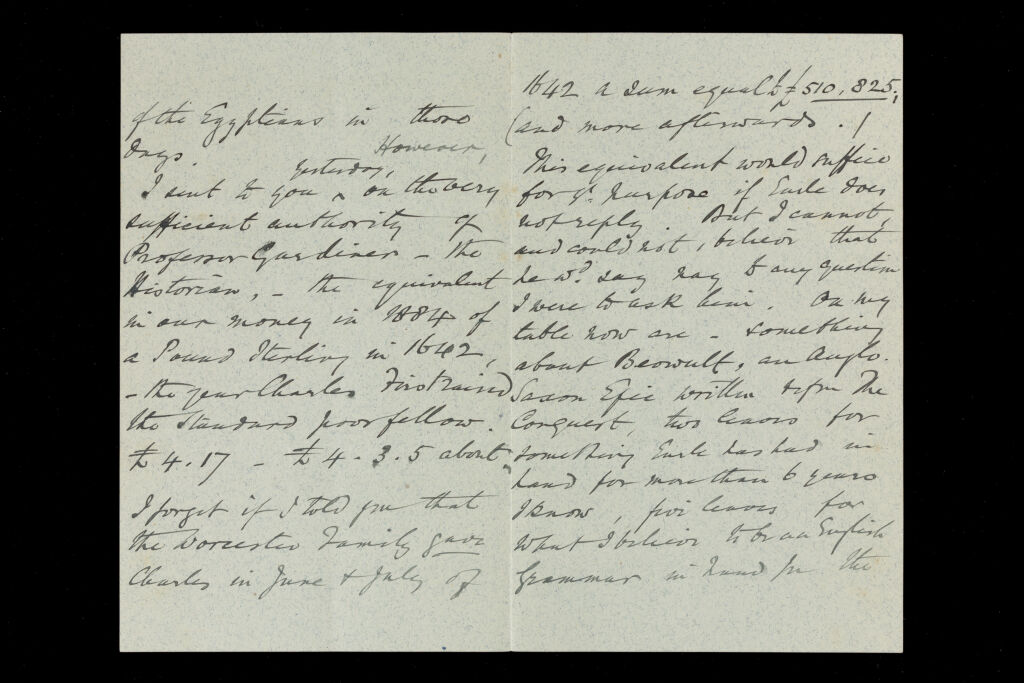 of the Egyptians in those
days. However,
I sent to you ^ yesterday, on the very
sufficient authority of
Professor Gardiner – the
Historian, – the equivalent
in our money in 1884 of
a Pound Sterling in 1642,
– the year Charles First raised
the Standard poor fellow.
£4.17 – £4.3.5 about
I forget if I told you that
the Worcester Family gave
Charles in June & July of
1642 a sum equal to £510,825;
(and more afterwards.)
This equivalent would suffice
for yr. purpose if Earle does
not reply. But I cannot,
and could not, believe that
he wd. say nay to any question
I were to ask him. On my
table now are – something
about Beowulf, an Anglo-
Saxon Epic written before The
Conquest, two leaves for
something Earle has had in
hand for more than 6 years
I know, five leaves for
what I believe to be an English
Grammar in hand for the